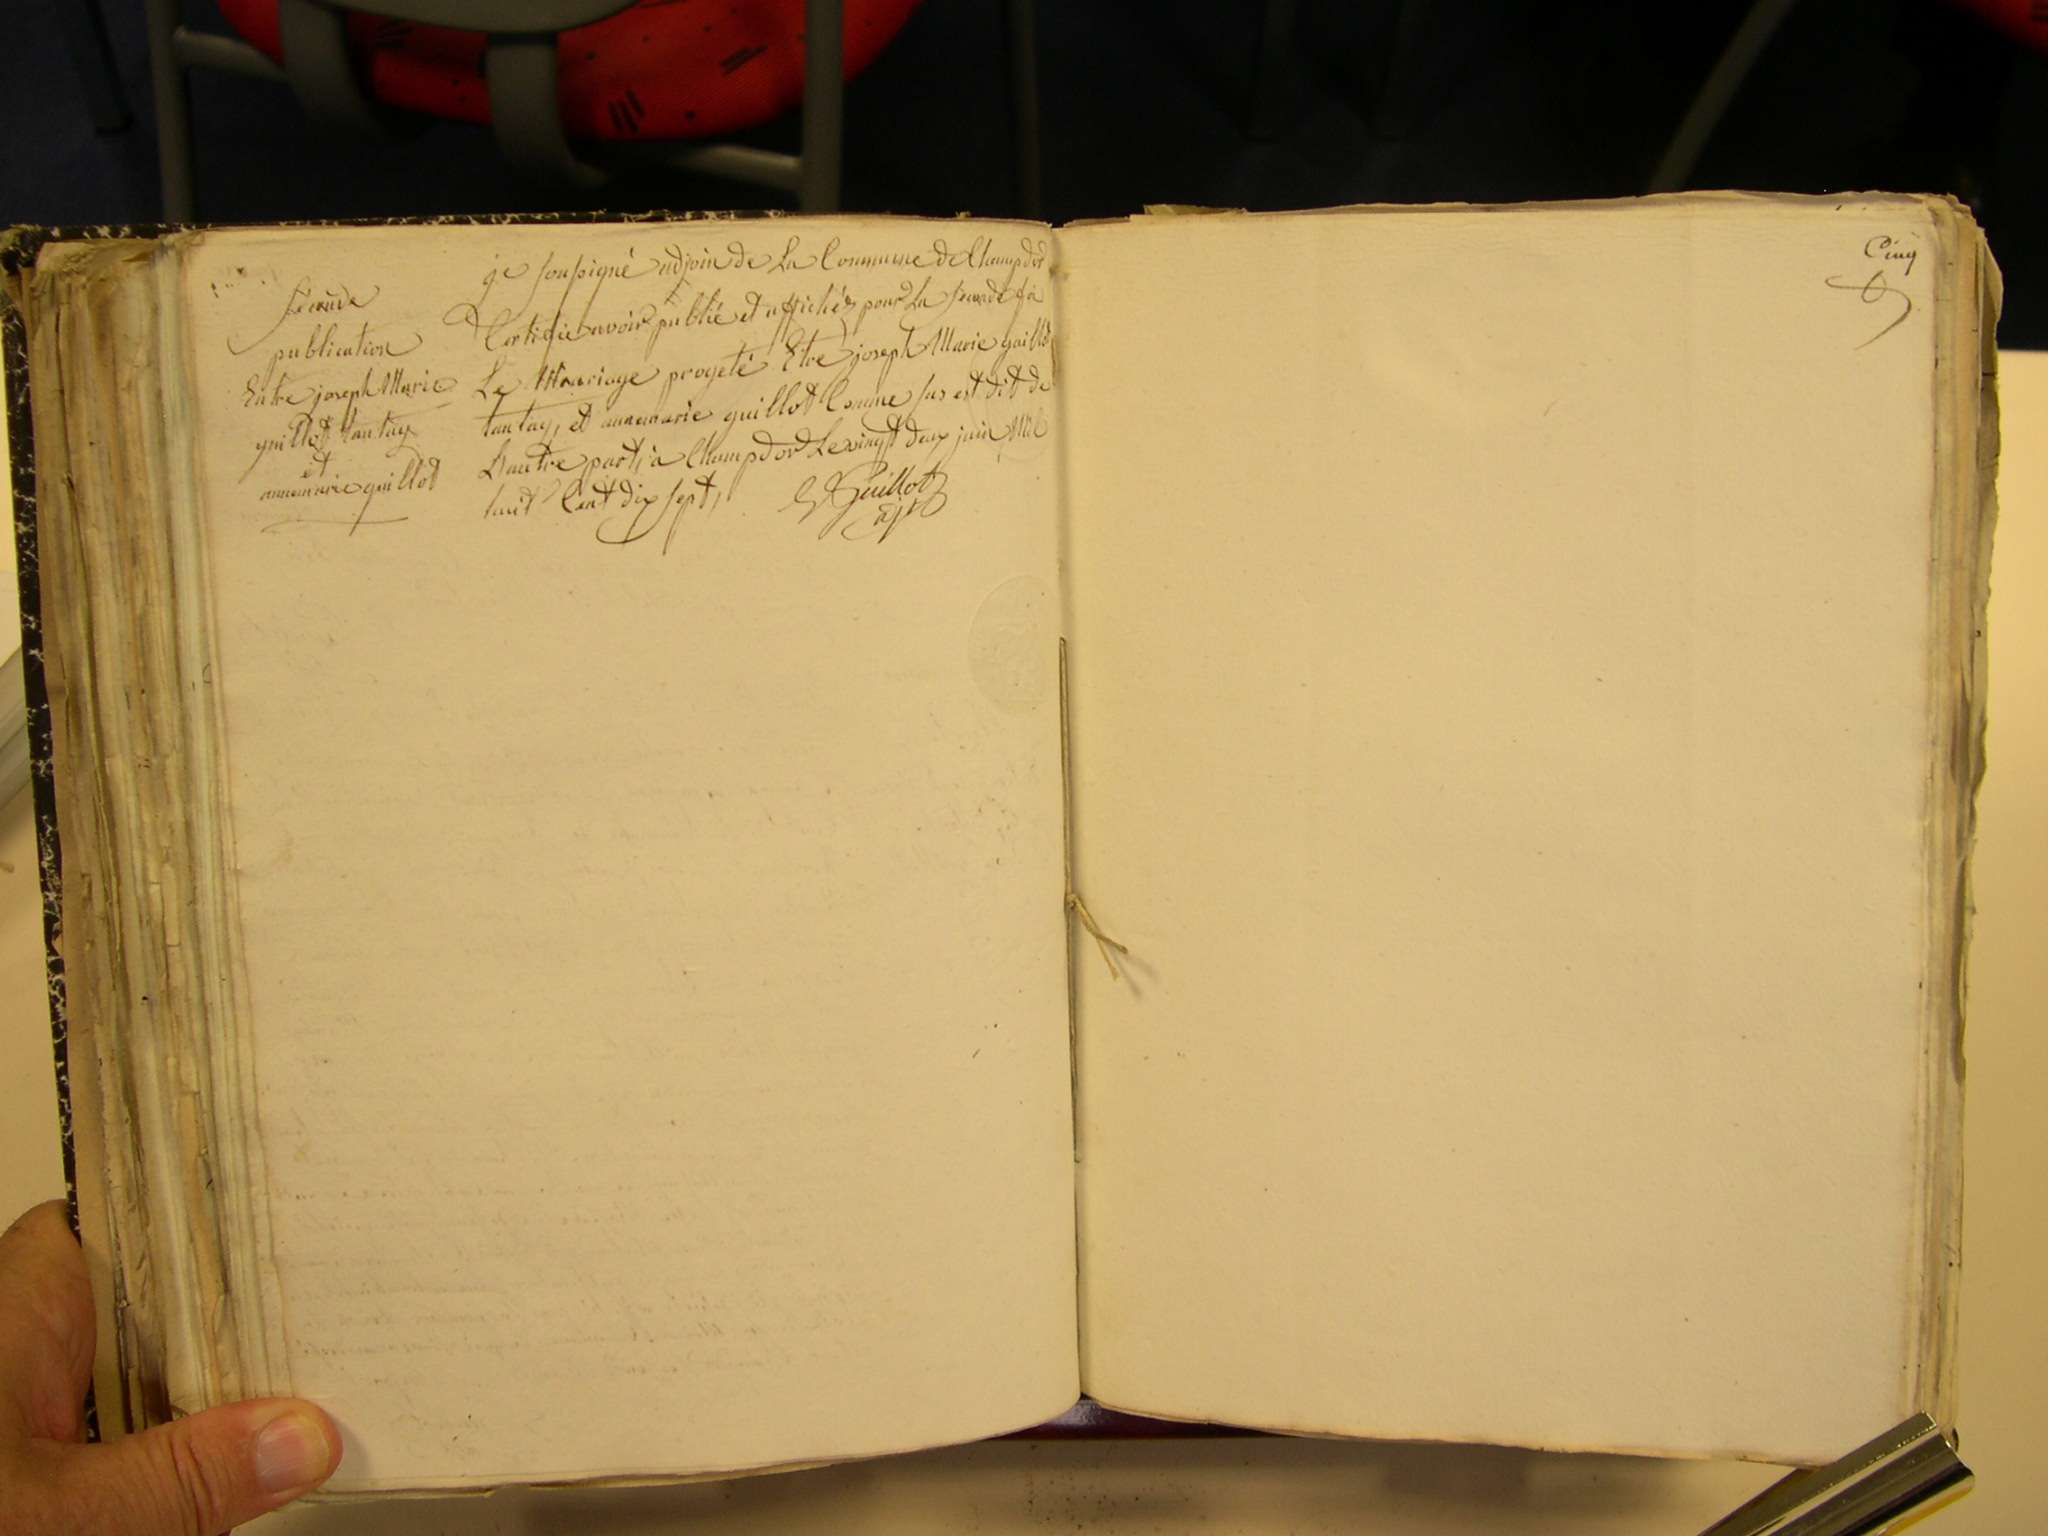 Seconde
publication
Entre joseph Marie
guillot tantay
et
annemarie guillot
je soussigné adjoin de La Commune de Champdor
Certifie avoir publié et affiché pour La seconde fa
Le Mariage progeté Etre joseph Marie guillot
tantay, et annemarie guillot Comme sus est dit de
Lautre part, a Champdor Le vingt deux juin Mil
huit Cent dix sept,
Guillot
ajt
Cinq